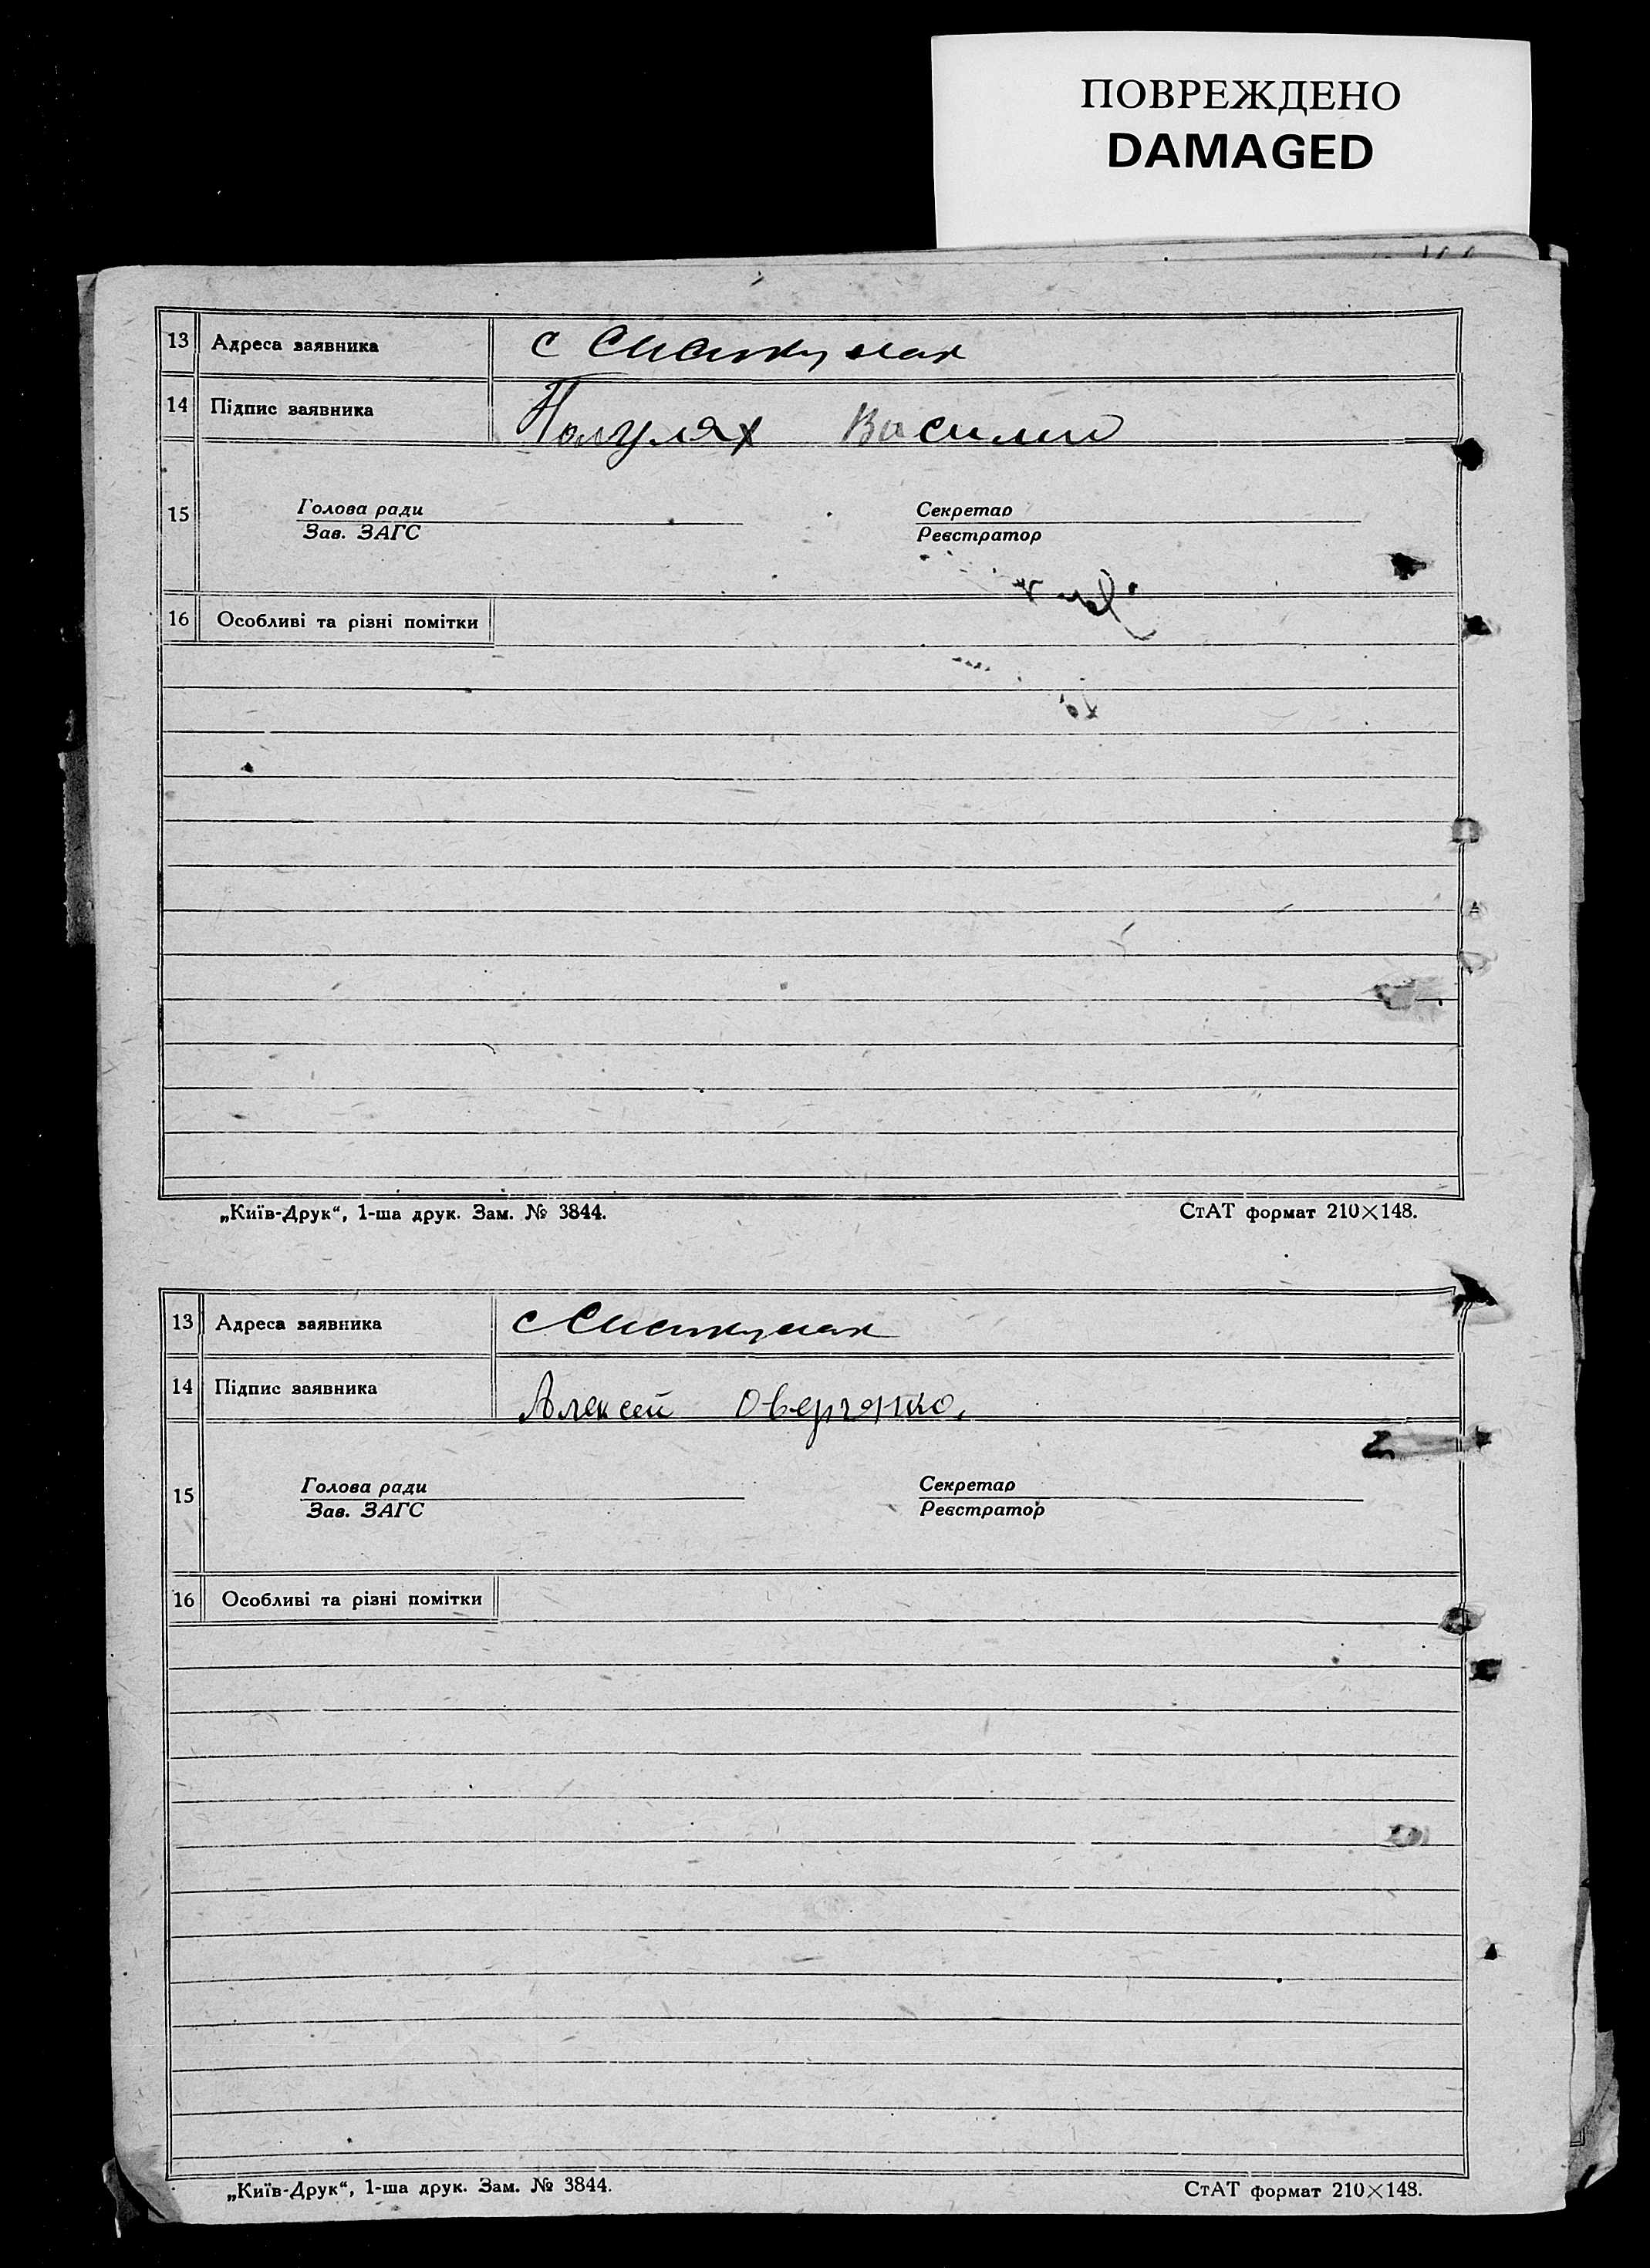 ПОВРЕЖДЕНО
DAMAGED
13 Адреса заявника с
14 Підпис заявника Полулях Василий
15 Голова ради Секретар
Зав. ЗАГС Реєстратор
16 Особливі та різні помітки
„Київ-Друк“, 1-ша друк. Зам. № 3844. СтАТ формат 210×148.
13 Адреса заявника с
14 Підпис заявника Алексей Оверчянко.
15 Голова ради Секретар
Зав. ЗАГС Реєстратор
16 Особливі та різні помітки
„Київ-Друк“, 1-ша друк. Зам. № 3844. СтАТ формат 210×148.